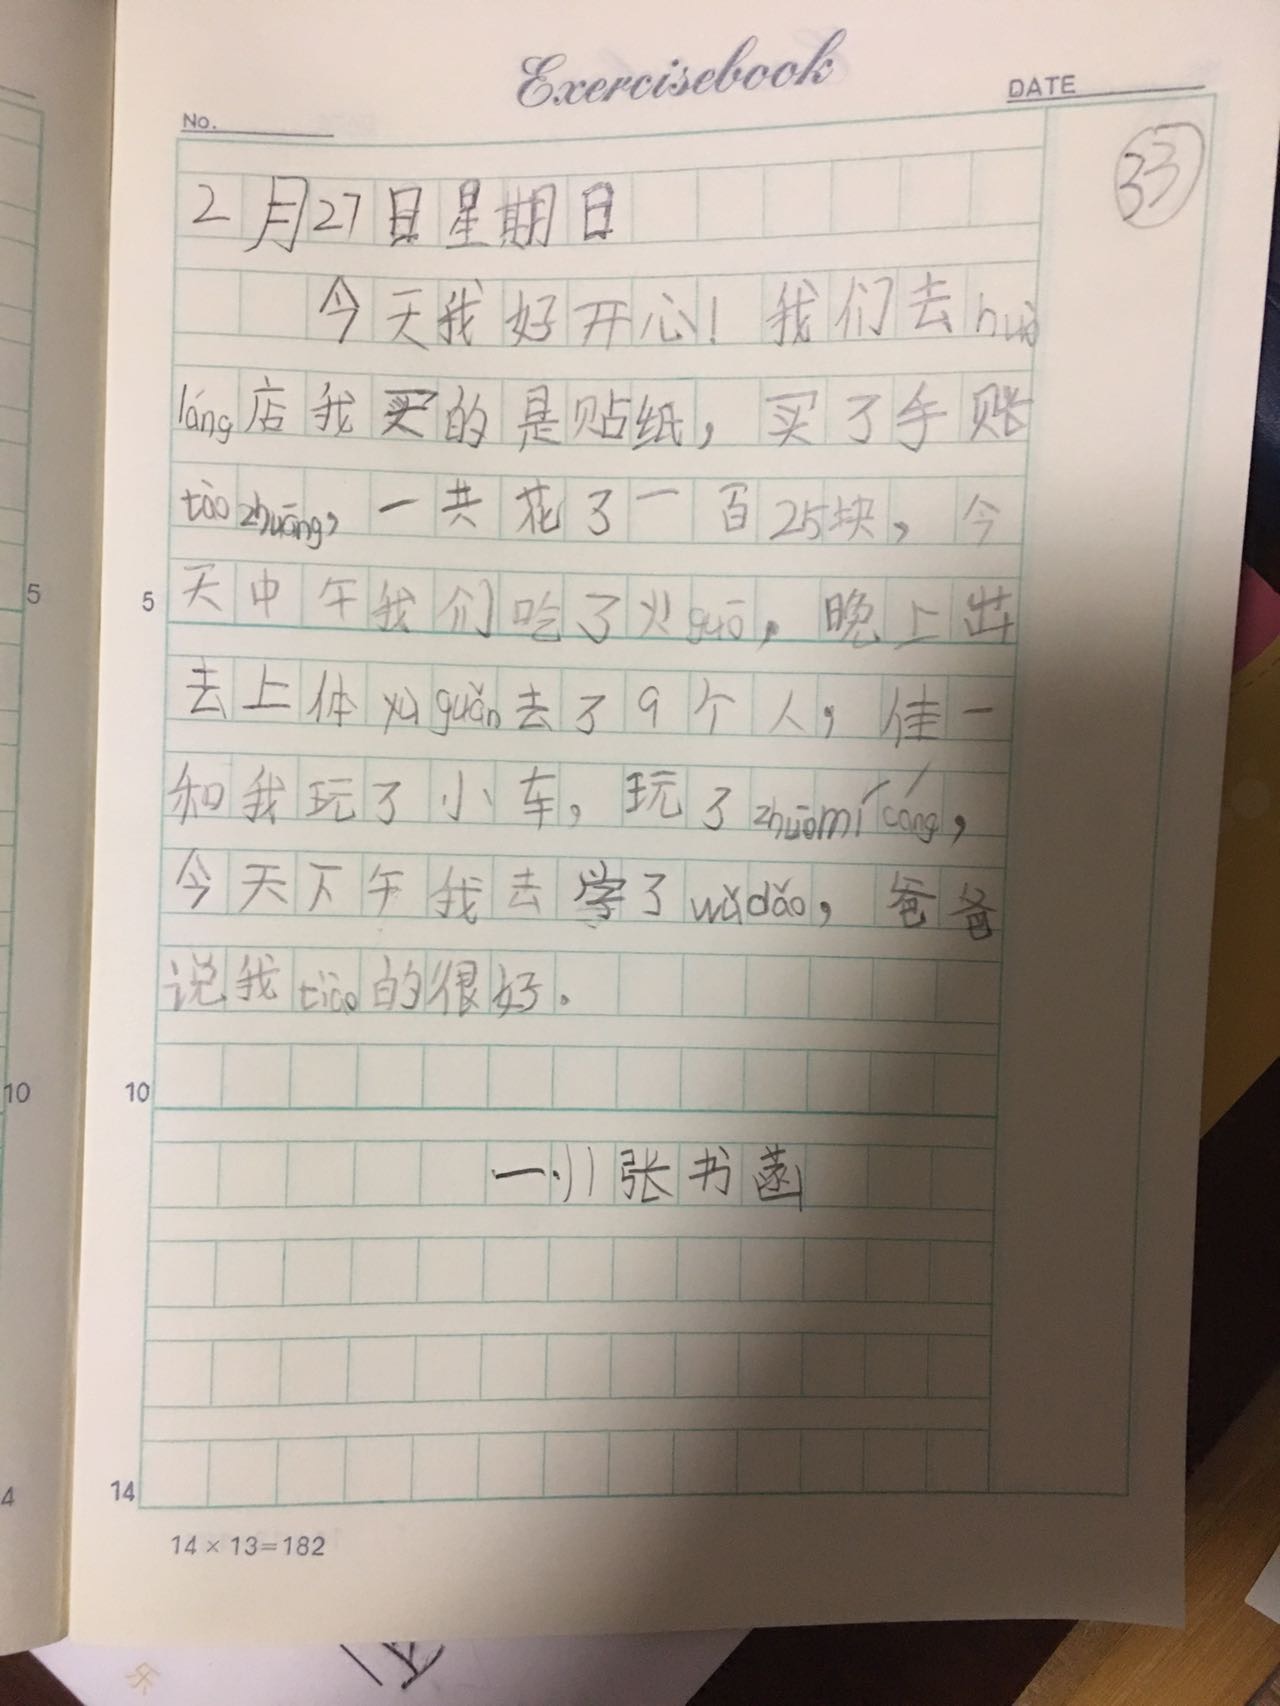 Exercisebook
No.
DATE
33
2月27日星期日
今天我好开心！我们去huò
láng店我买的是贴纸，买了手账
tàozhuāng，一共花了一百25块，今
天中午我们吃了火guō，晚上出
去上体yùguǎn去了9个人，佳一
和我玩了小车，玩了zhuōmícáng，
今天下午我去学了wǔdǎo，爸爸
说我tiào的很好。
5
5
10
10
一小张书菡
14
4
14×13=182
乐